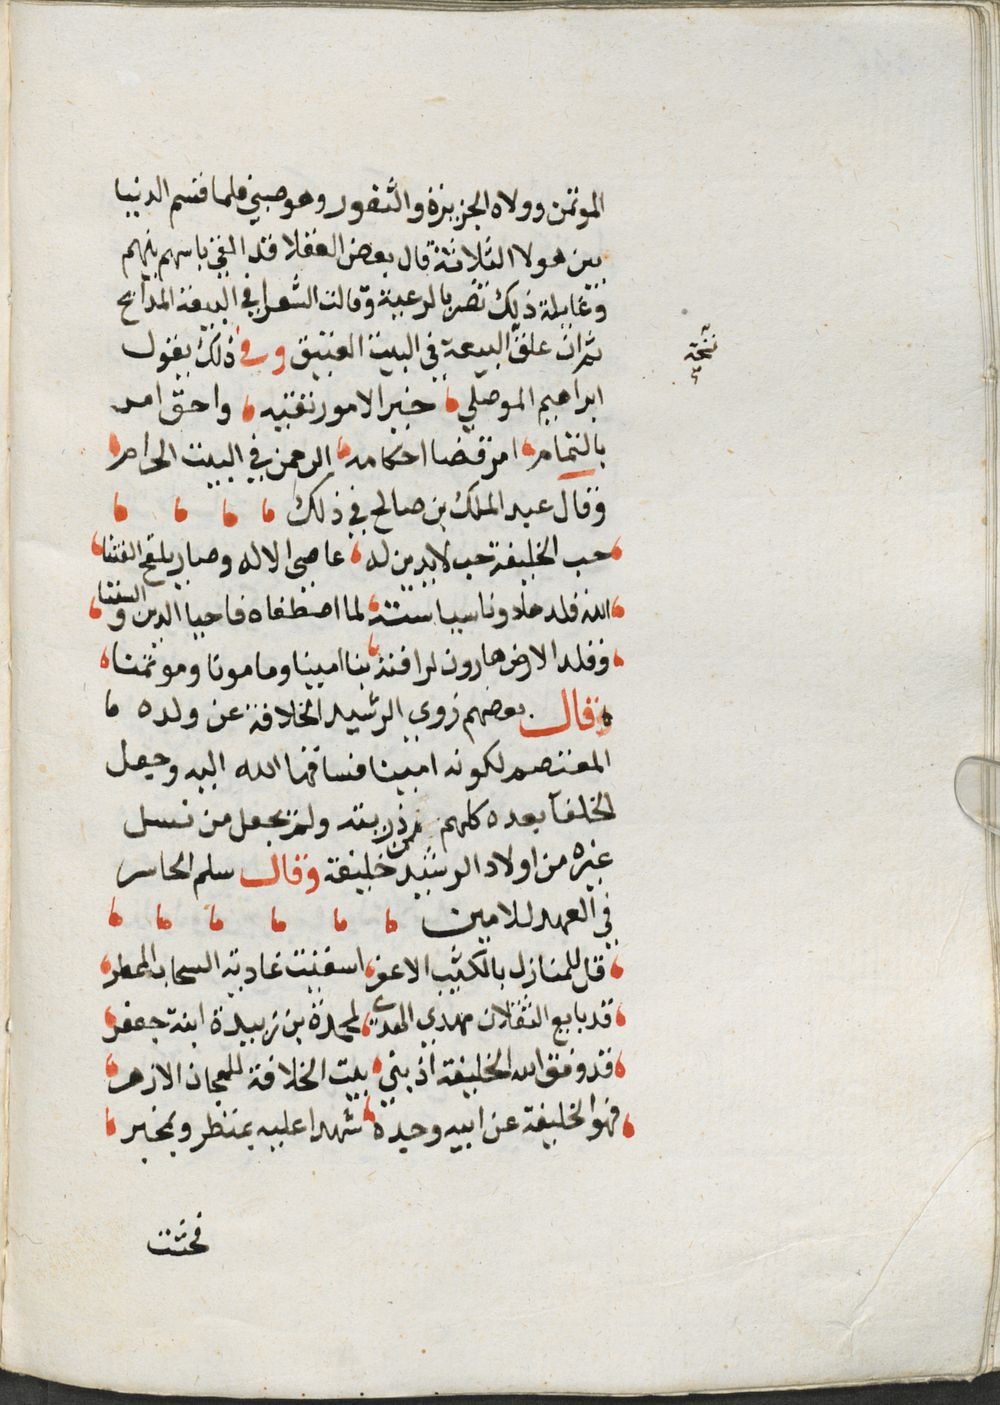 الموتمن وولاه الجزيرة والثغور وهو صبي فلما قسم الدنيا
بين هولا الثلاثة قال بعض العقلا قد القي باسهم بينهم
وغايلة ذلك تضر بالرعية وقالت الشعرا في البيعة المدايح
ثم انه علق البيعة في البيت العتيق وفي ذلك يقول
ابراهيم الموصلي خير الامور تقتيه واحق امر
بالتمام امر قضا احكامه الرحمن في البيت الحرام
وقال عبد الملك بن صالح في ذلك
حب الخليفة حب لا يدين له عاصي الاله وصار يلقح الفتنا
الله قلد هارونا سياسته لما اصطفاه فاحيا الدين والسننا
وقلد الارض هارون لرافته بنا امينا ومامونا وموتمنا
وقال بعضهم زوي الرشيد الخلافة عن ولده
المعتصم لكونه اميا فساقها الله اليه وجعل
الخلفآ بعده كلهم من ذريته ولم يجعل من نسل
غيره من اولاد الرشيد خليفة وقال سلم الخاسر
في العهد للامين
قل للمنازل بالكثيب الاعفر اسقيت غادية السحاب الممطر
قد بايع الثقلان مهدي الهدى لمحمد بن زبيدة ابنة جعفر
قد وفق الله الخليفة اذ بني بيت الخلافة للهجان الازهر
فهو الخليفة عن ابيه وجده شهدا عليه بمنظر وبمخبر
فحثت